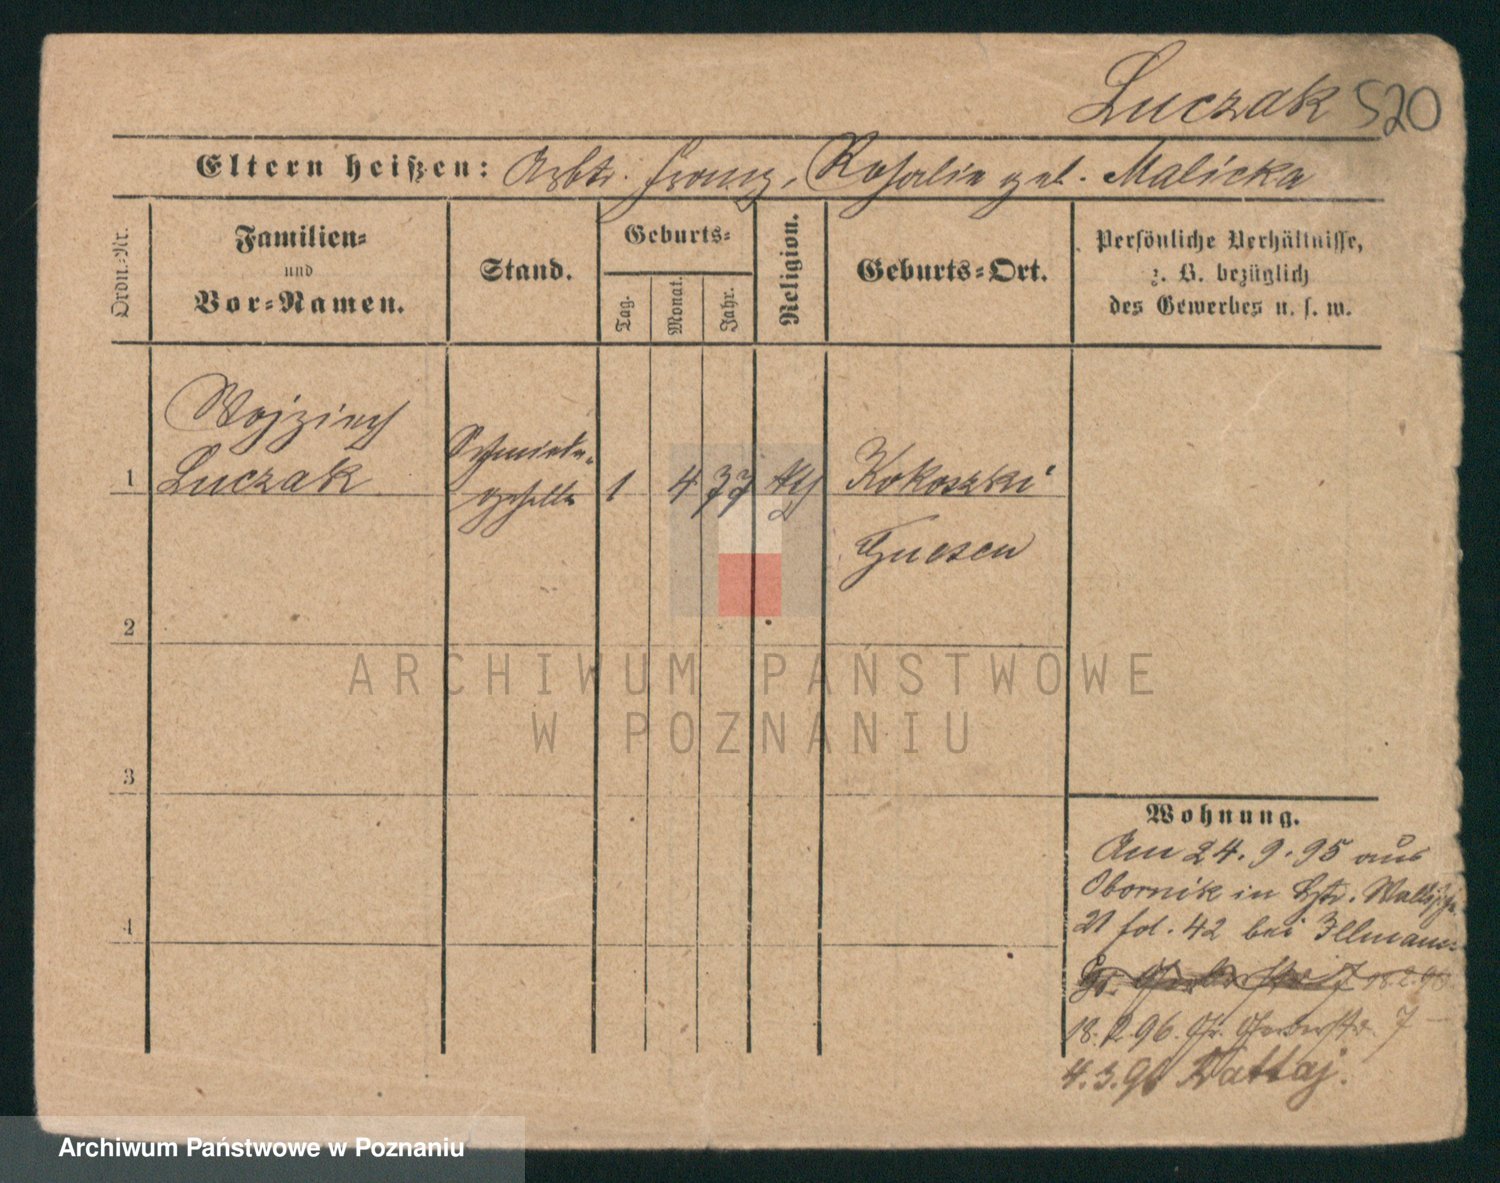 Luczak 520
Eltern heißen: Arbtr. Franz, Rosalie geb. Malicka
Ordn.-Nr.
Familien-
und
Vor-Namen.
Stand.
Geburts-
Tag.
Monat.
Jahr.
Religion.
Geburts-Ort.
Persönliche Verhältnisse,
z. B. bezüglich
des Gewerbes u. s. w.
Luczak
1
1 4 77
Kokoszki
Gnesen
2
3
4
Wohnung.
Am 24.9.95 aus
Obornik in
21 fol. 42 bei
18.2.96. Gr. Gerberstr. 7
4.3.96 Rattaj.
ARCHIWUM PAŃSTWOWE
W POZNANIU
Archiwum Państwowe w Poznaniu